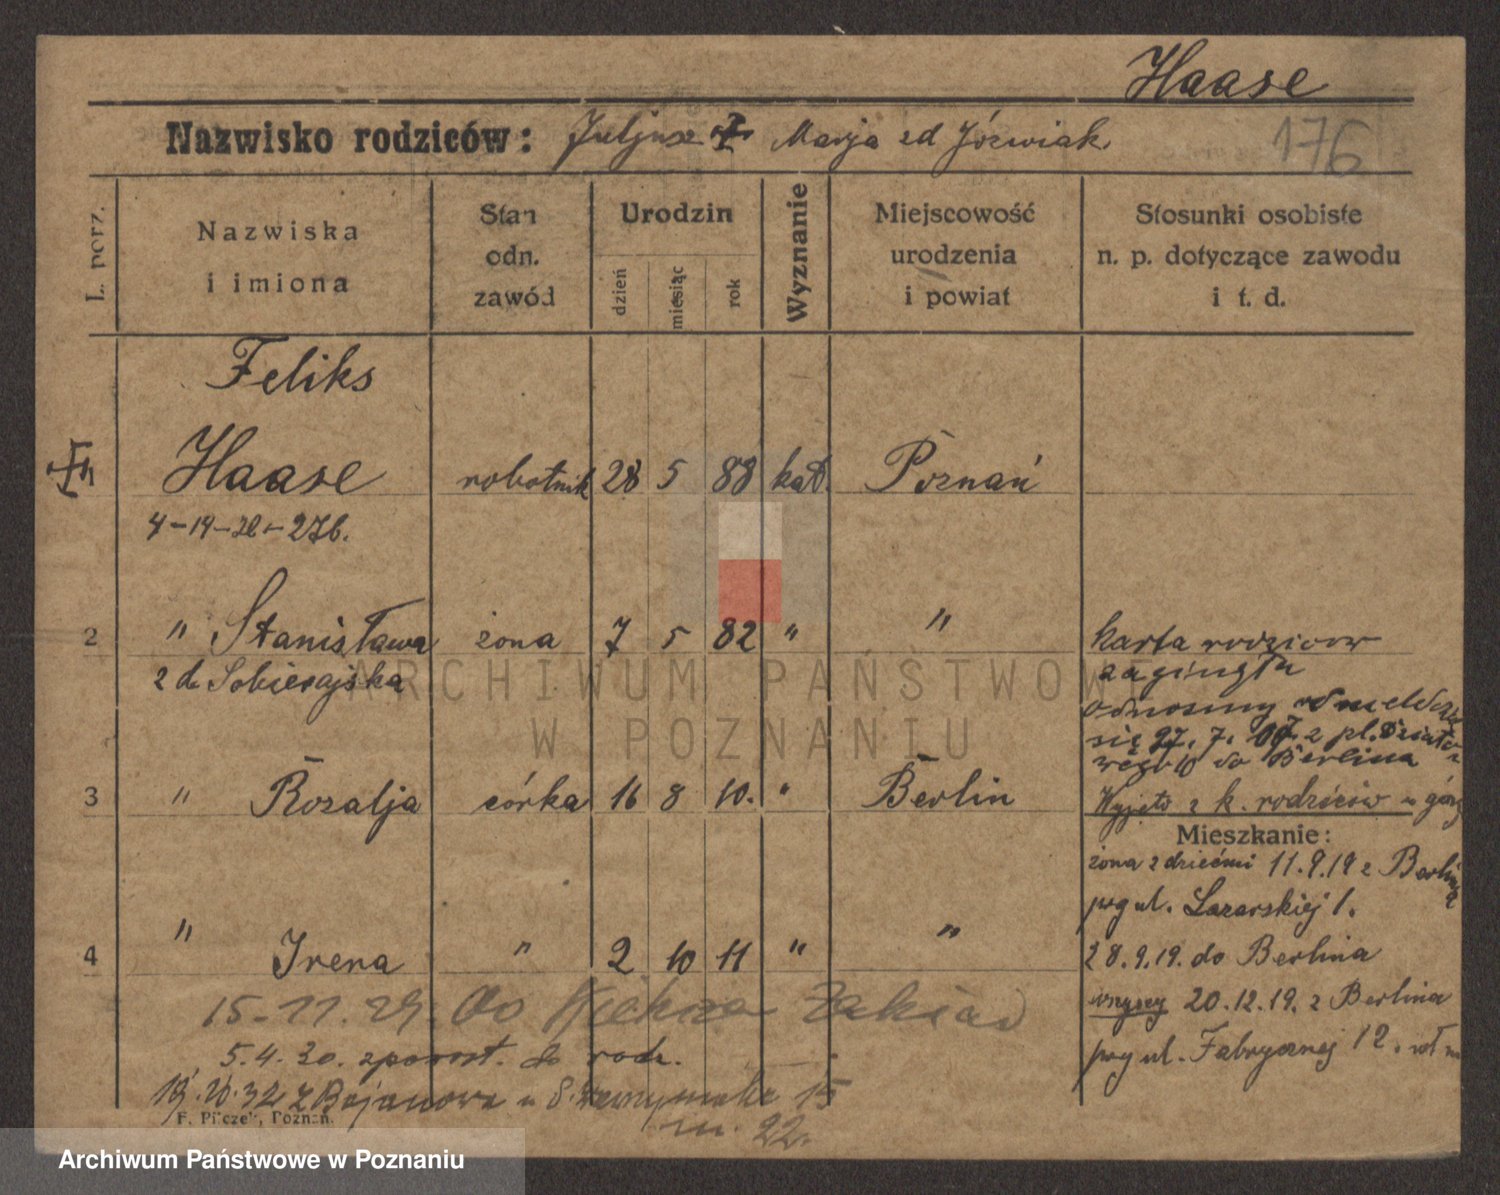 Haase
Nazwisko rodziców: Juljusz Marja zd Józwiak
176
L. porz.
Nazwiska
i imiona
Stan
odn.
zawód
Urodzin
dzień
miesiąc
rok
Wyznanie
Miejscowość
urodzenia
i powiat
Stosunki osobiste
n. p. dotyczące zawodu
i t. d.
Feliks
Haase robotnik 28 5 88 kat. Poznań
4-19-
2 " Stanisława żona 7 5 82 " "
2 d. Sobierajska
karta rodziców
zaginęła
odnosiny
się 27. 7. 2 pl.
do Berlina
3 " Rozalja córka 16 8 10. " Berlin
Wyjęto z k. rodziców
Mieszkanie:
żona z dziećmi 11.9.19 z Berlina
przy ul. Lazarskiej 1.
4 " Irena " 2 10 11 " "
28.9.19. do Berlina
wszyscy 20.12.19. z Berlina
przy ul. Fabrycznej 12.
15-11.29. do Zakład
5.4.30. do rodz.
z Bojanowa 15
m. 22.
F. Pilczek, Poznań.
ARCHIWUM PAŃSTWOWE
W POZNANIU
Archiwum Państwowe w Poznaniu